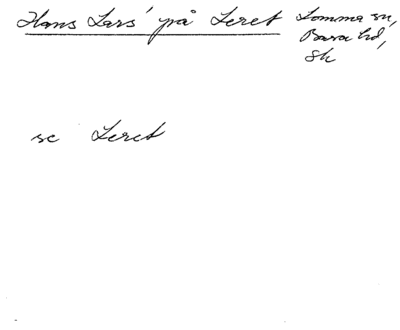 Hans Lars' på Leret
Lomma sn,
Bara hd,
Sk
se Leret